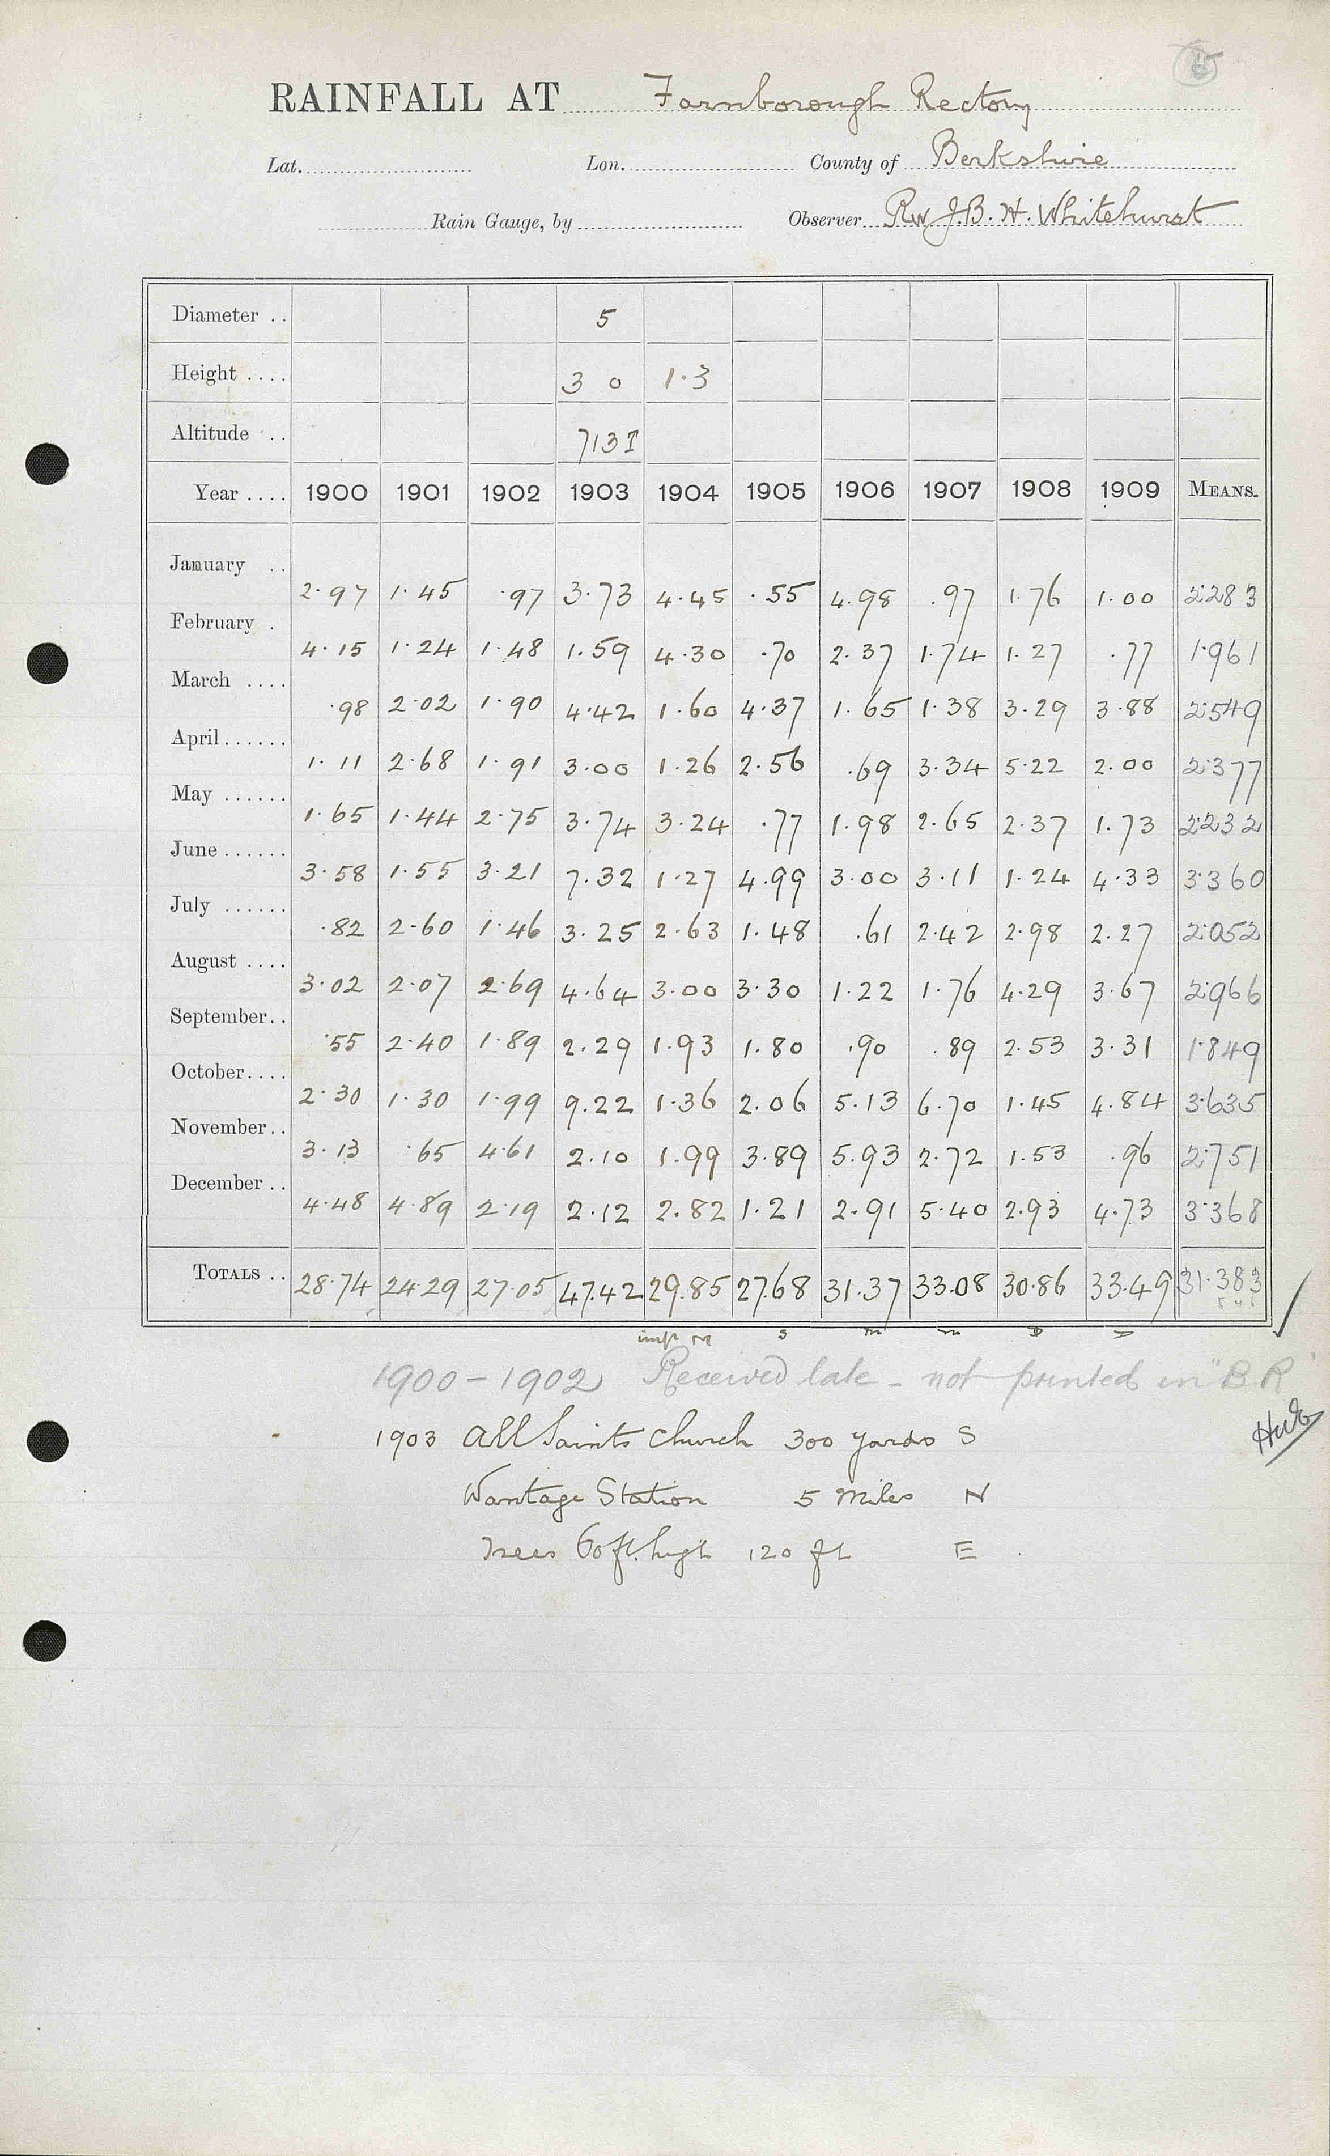 RAINFALL AT Farnborough Rectory
Lat. Lon. County of Berkshire
Rain Gauge, by Observer Rev J. B. H. Whitehurst
Diameter .. 5
Height .... 3 0 1.3
Altitude .. 713T
Year .... 1900 1901 1902 1903 1904 1905 1906 1907 1908 1909 MEANS.
January .. 2.97 1.45 .97 3.73 4.45 .55 4.98 .97 1.76 1.00 2.283
February . 4.15 1.24 1.48 1.59 4.30 .70 2.37 1.74 1.27 .77 1.961
March .... .98 2.02 1.90 4.42 1.60 4.37 1.65 1.38 3.29 3.88 2.549
April ...... 1.11 2.68 1.91 3.00 1.26 2.56 .69 3.34 5.22 2.00 2.377
May ...... 1.65 1.44 2.75 3.74 3.24 .77 1.98 2.65 2.37 1.73 2.232
June ...... 3.58 1.55 3.21 7.32 1.27 4.99 3.00 3.11 1.24 4.33 3.360
July ...... .82 2.60 1.46 3.25 2.63 1.48 .61 2.42 2.98 2.27 2.052
August .... 3.02 2.07 2.69 4.64 3.00 3.30 1.22 1.76 4.29 3.67 2.966
September.. .55 2.40 1.89 2.29 1.93 1.80 .90 .89 2.53 3.31 1.849
October.... 2.30 1.30 1.99 9.22 1.36 2.06 5.13 6.70 1.45 4.84 3.635
November.. 3.13 .65 4.61 2.10 1.99 3.89 5.93 2.72 1.53 .96 2.751
December .. 4.48 4.89 2.19 2.12 2.82 1.21 2.91 5.40 2.93 4.73 3.368
TOTALS .. 28.74 24.29 27.05 47.42 29.85 27.68 31.37 33.08 30.86 33.49 31.383
1900-1902 Received late - not printed in "B R"
1903 All Saints Church 300 yards S
Wantage Station 5 Miles N
Trees 60 ft. high 120 ft E